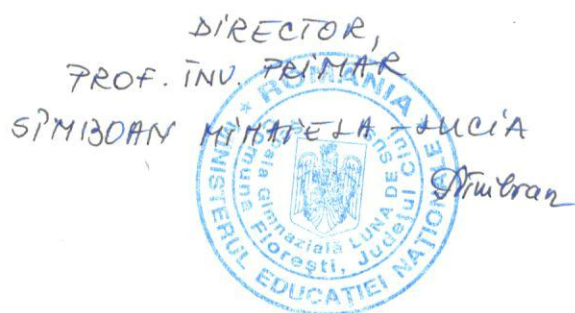 DIRECTOR,
PROF. ÎNV. PRIMAR
SÎMBOAN MIHAIELA-LUCIA
Sîmboan
* ROMÂNIA *
MINISTERUL EDUCAȚIEI NAȚIONALE
Școala Gimnazială LUNA DE SUS
Comuna Florești, Județul Cluj